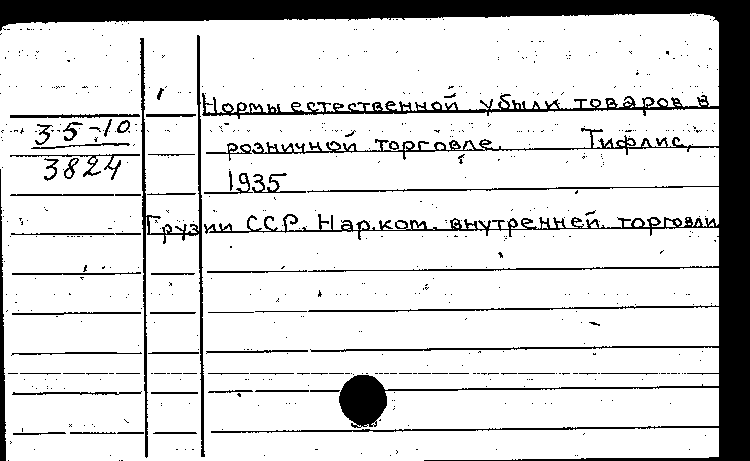 Нормы естественной убыли товаров в
35-10
розничной торговле. Тифлис,
3824
1935
Грузии ССР. Нар.ком. внутренней торговли